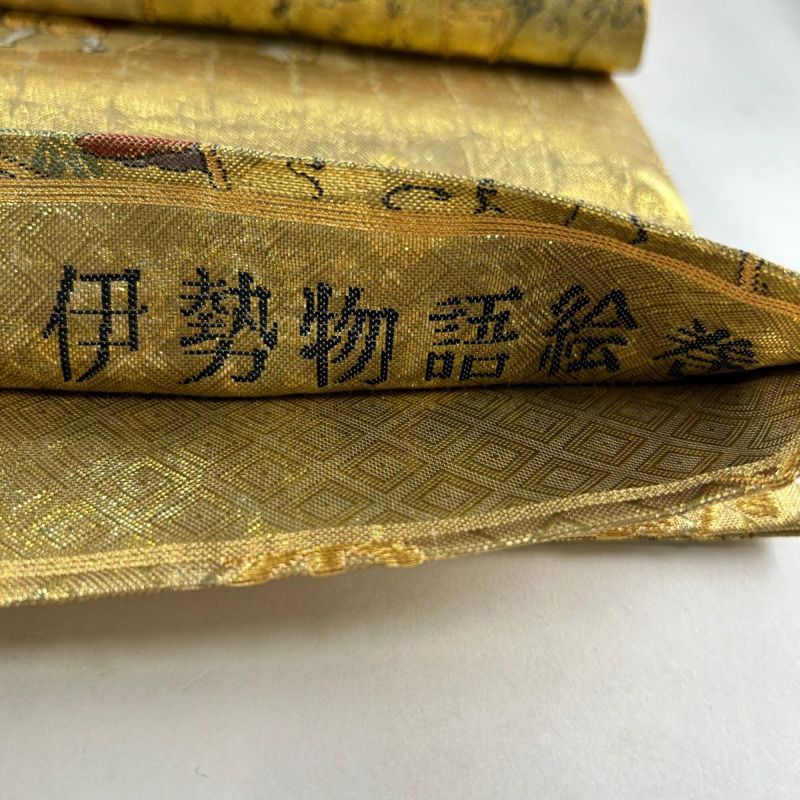 伊勢物語絵巻